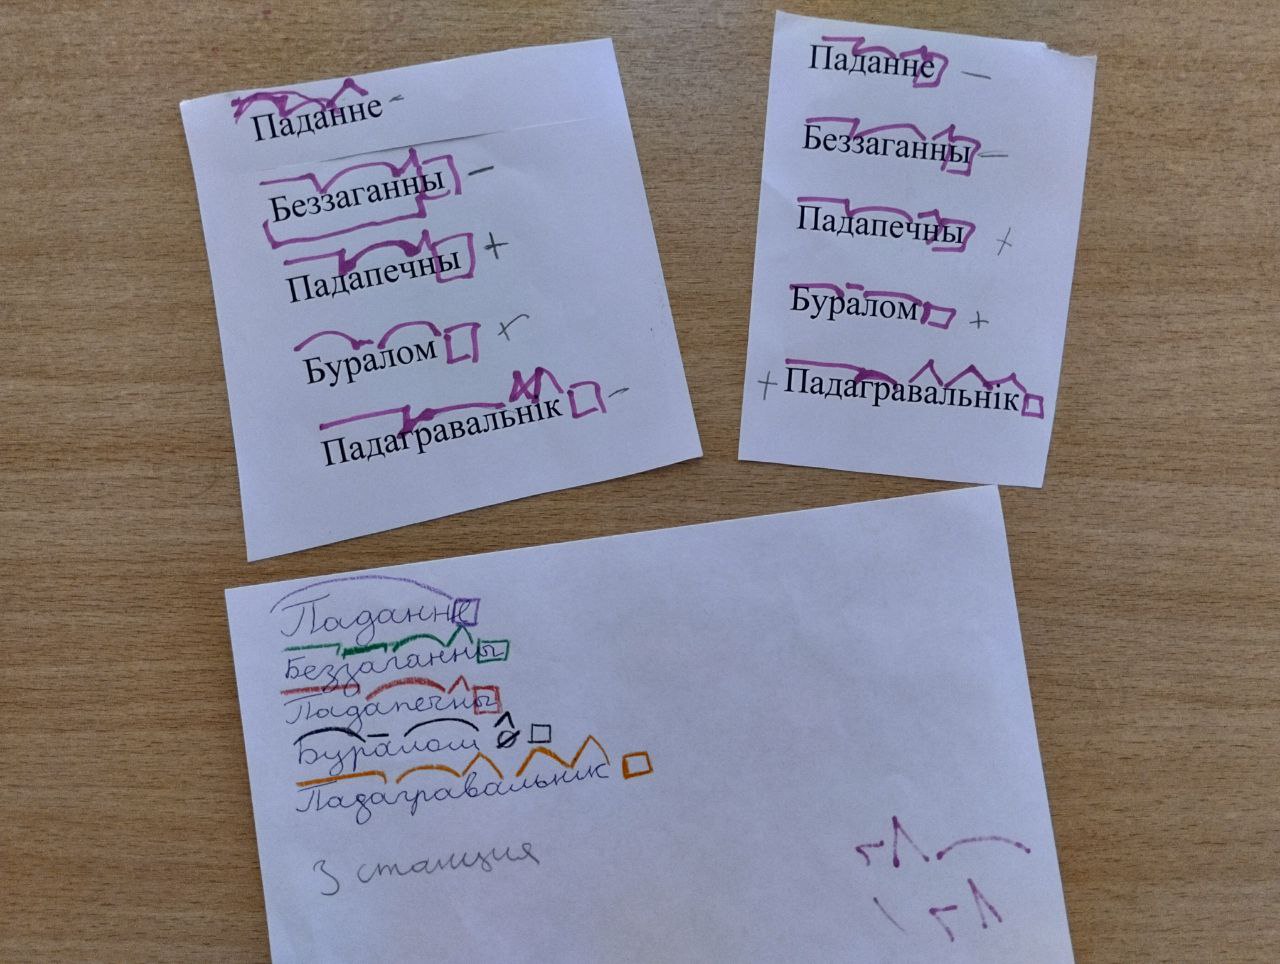 Паданне -
Беззаганны -
Падапечны +
Буралом +
Падагравальнік -
Паданне -
Беззаганны -
Падапечны +
Буралом +
+ Падагравальнік
Паданне
Беззаганны
Падапечны
Буралом ø
Падагравальнік
3 станция